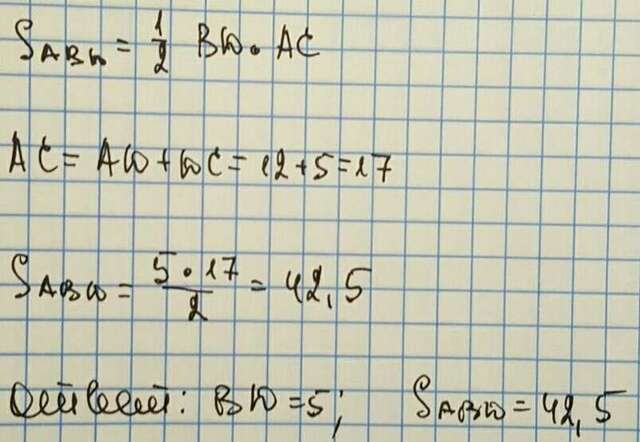 S_ABЮ = 1/2 BЮ · AC
AC = AЮ + ЮC = 12 + 5 = 17
S_ABЮ = (5 · 17)/2 = 42,5
Ответ: BЮ = 5; S_ABЮ = 42,5